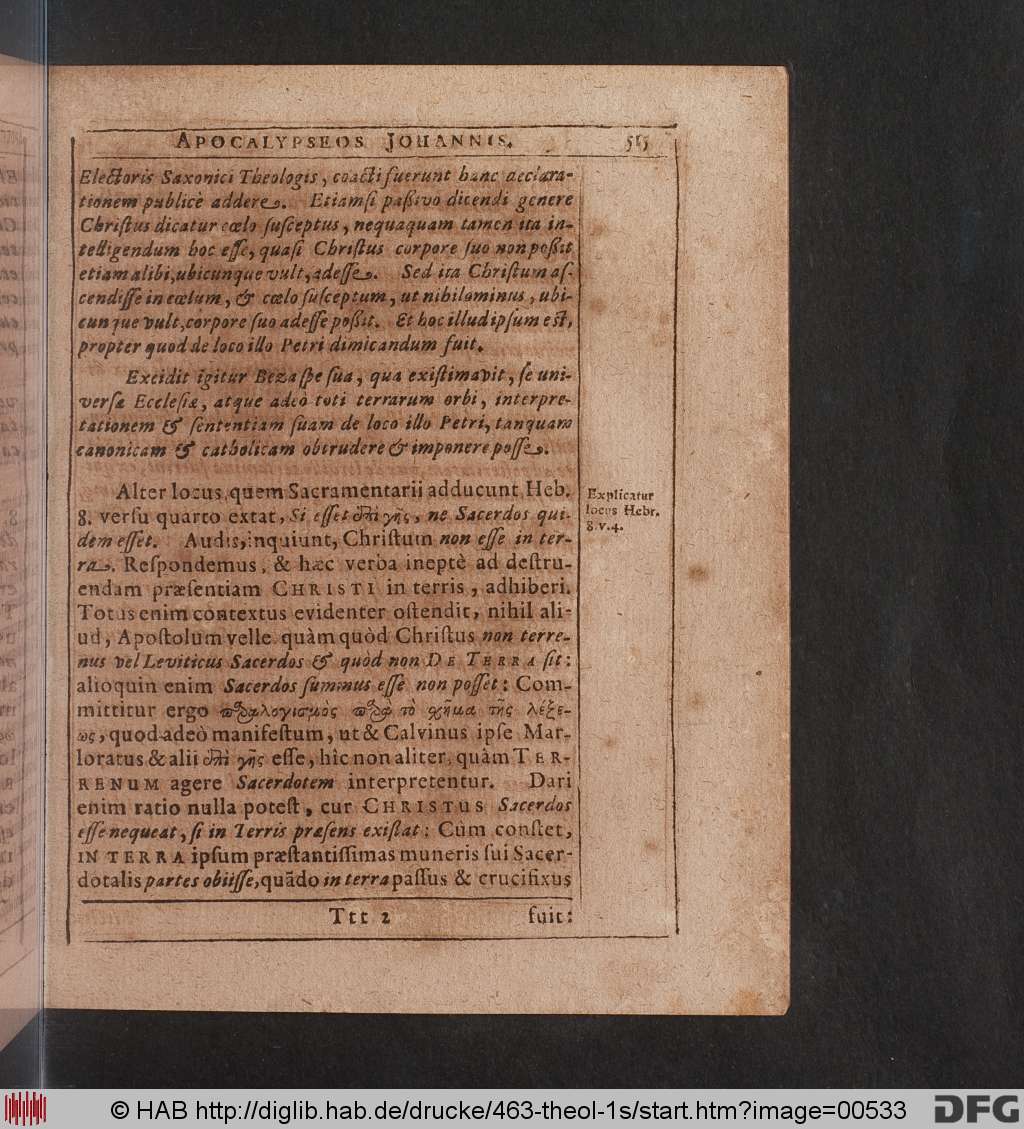 APOCALYPSEOS JOHANNIS. 515
Electoris Saxonici Theologis, coacti fuerunt hanc declara-
tionem publicè addere. Etiamſi paſſivo dicendi genere
Chriſtus dicatur cœlo ſuſceptus, nequaquam tamen ita in-
telligendum hoc eſſe, quaſi Chriſtus corpore ſuo non poßit
etiam alibi, ubicunque vult, adeſſe. Sed ita Chriſtum aſ-
cendiſſe in cœlum, & cœlo ſuſceptum, ut nihilominus, ubi-
cunque vult, corpore ſuo adeſſe poßit. Et hoc illud ipſum eſt,
propter quod de loco illo Petri dimicandum fuit.
Excidit igitur Beza ſpe ſua, qua exiſtimavit, ſe uni-
verſæ Eccleſiæ, atque adeò toti terrarum orbi, interpre-
tationem & ſententiam ſuam de loco illo Petri, tanquam
canonicam & catholicam obtrudere & imponere poſſe.
Alter locus, quem Sacramentarii adducunt, Heb.
8. verſu quarto extat, Si eſſet ἐπὶ γῆς, ne Sacerdos qui-
dem eſſet. Audis, inquiunt, Chriſtum non eſſe in ter-
ra. Reſpondemus, & hæc verba ineptè ad deſtru-
endam præſentiam CHRISTI in terris, adhiberi.
Totus enim contextus evidenter oſtendit, nihil ali-
ud, Apoſtolum velle quàm quòd Chriſtus non terre-
nus vel Leviticus Sacerdos & quòd non DE TERRA ſit:
alioquin enim Sacerdos ſummus eſſe non poſſet: Com-
mittitur ergo παραλογισμὸς παρὰ τὸ χῆμα τῆς λέξε-
ως, quod adeò manifeſtum, ut & Calvinus ipſe Mar-
loratus & alii ἐπὶ γῆς eſſe, hîc non aliter, quàm TER-
RENUM agere Sacerdotem interpretentur. Dari
enim ratio nulla poteſt, cur CHRISTUS Sacerdos
eſſe nequeat, ſi in Terris præſens exiſtat: Cùm conſtet,
IN TERRA ipſum præſtantiſſimas muneris ſui Sacer-
dotalis partes obiiſſe, quādo in terra paſſus & crucifixus
Ttt 2 fuit:
Explicatur
locus Hebr.
8. v. 4.
© HAB http://diglib.hab.de/drucke/463-theol-1s/start.htm?image=00533
DFG